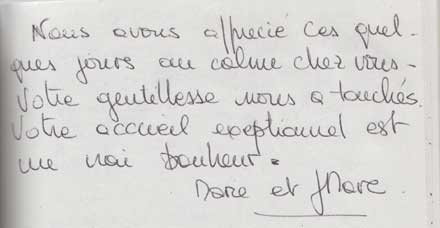 Nous avons apprecié ces quel-
ques jours au calme chez vous-
Votre gentillesse nous a touchés.
Votre accueil exeptionnel est
un vrai bonheur.
Marie et JMarc.